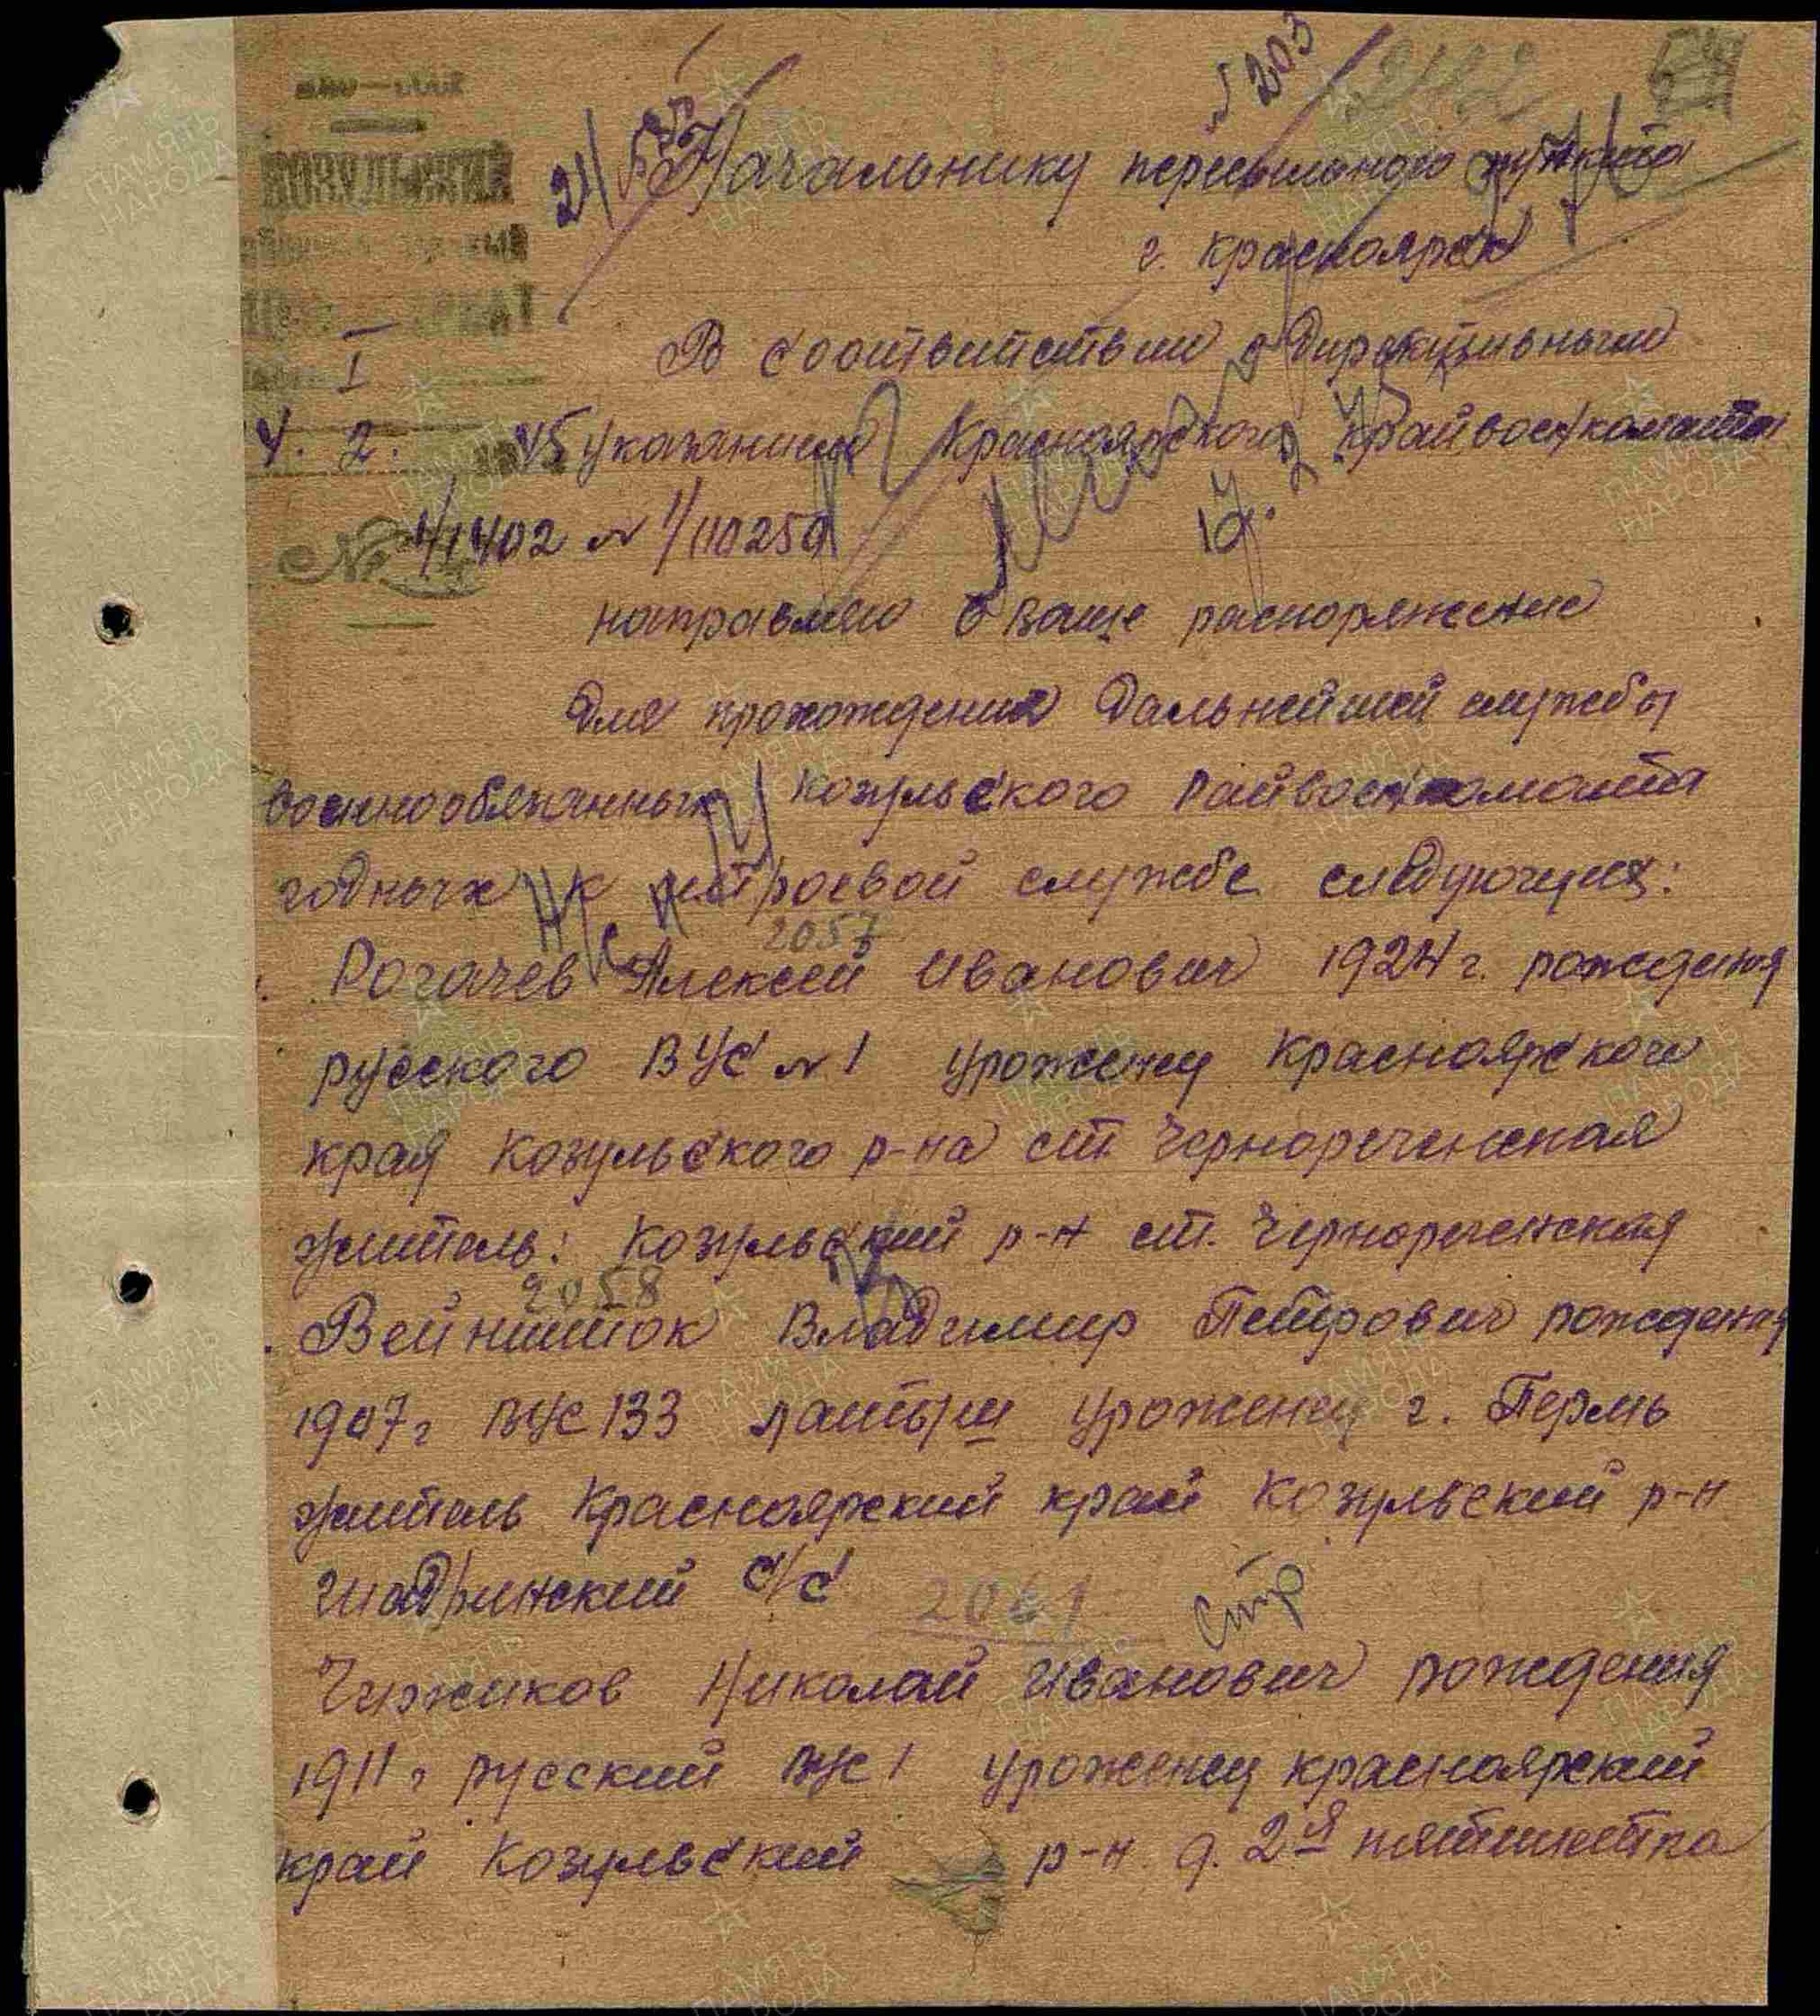 № 203
Начальнику пересыльного пункта
г. Красноярск
I
В соответствии с директивными
4. 2. 45 указанием Красноярского Крайвоенкомата
№ 1/1402 № 1/110259
направляю в ваше распоряжение
для прохождения дальнейшей службы
военнообязанных Козульского Райвоенкомата
годных к строевой службе следующих:
2057
Рогачев Алексей Иванович 1924 г. рождения
русского ВУС № 1 урожену Красноярского
края Козульского р-на ст. Чернореченская
житель: Козульский р-н ст. Чернореченская
2058
Вейншток Владимир Петрович рождения
1907 г ВУС 133 латыш урожену г. Пермь
житель Красноярский край Козульский р-н
Шадринский с/с
2061 стр
Чижиков Николай Иванович рождения
1911 г русский ВУС 1 урожену Красноярский
край Козульский р-н. д. 2-я пятилетка
ПАМЯТЬ НАРОДА